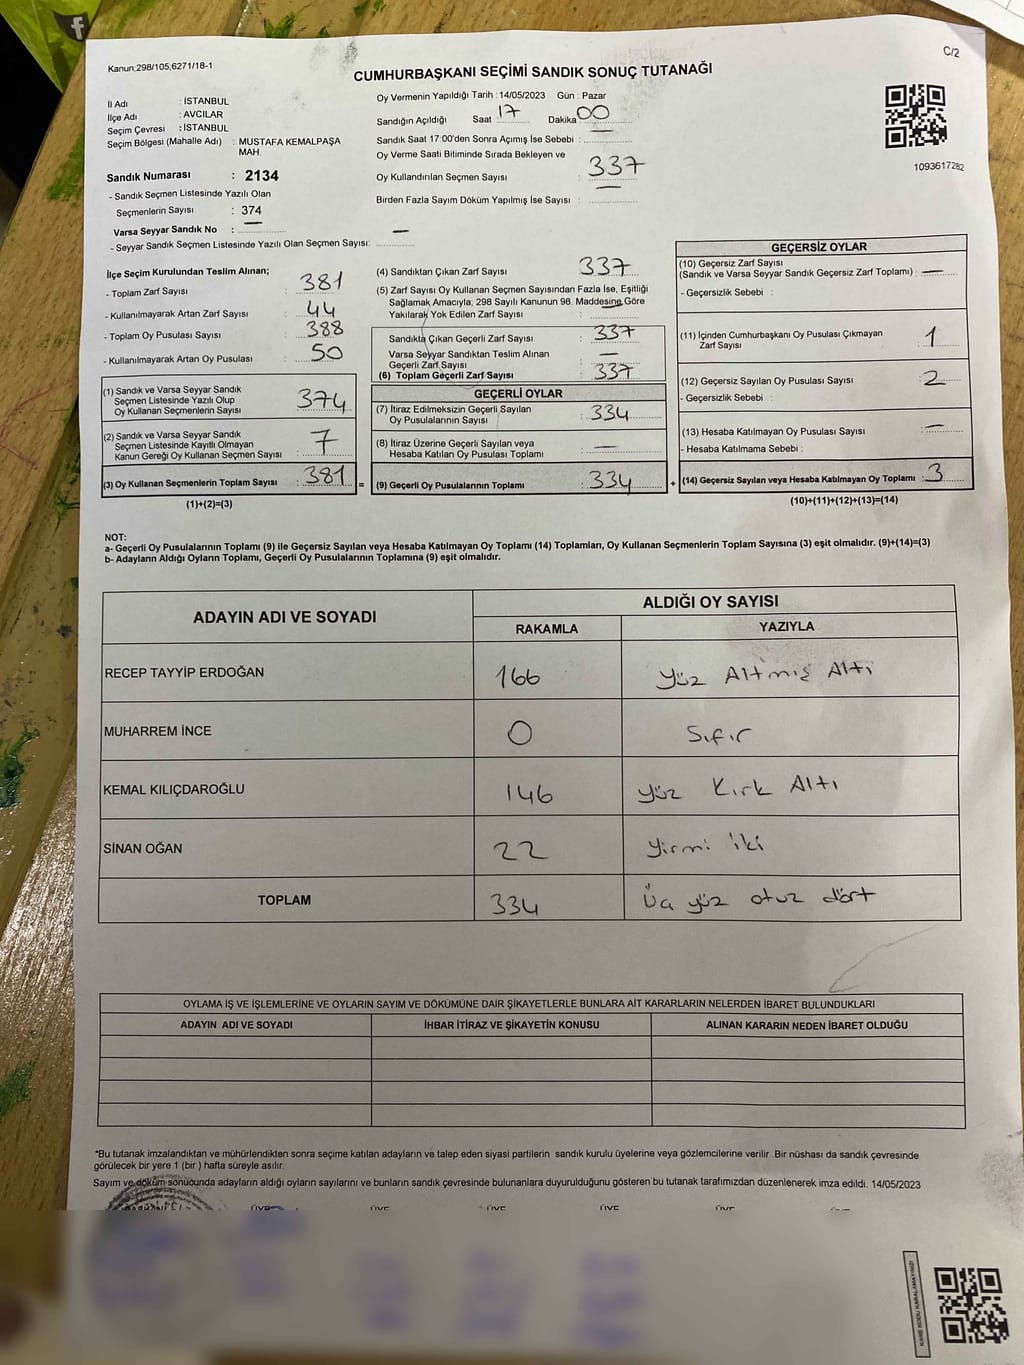 C/2
Kanun;298/105;6271/18-1
CUMHURBAŞKANI SEÇİMİ SANDIK SONUÇ TUTANAĞI
İl Adı : İSTANBUL
İlçe Adı : AVCILAR
Seçim Çevresi : İSTANBUL
Seçim Bölgesi (Mahalle Adı) : MUSTAFA KEMALPAŞA
MAH.
Sandık Numarası : 2134
- Sandık Seçmen Listesinde Yazılı Olan
Seçmenlerin Sayısı : 374
Varsa Seyyar Sandık No : —
- Seyyar Sandık Seçmen Listesinde Yazılı Olan Seçmen Sayısı: —
Oy Vermenin Yapıldığı Tarih : 14/05/2023 Gün : Pazar
Sandığın Açıldığı Saat 17 Dakika 00
Sandık Saat 17:00'den Sonra Açımış İse Sebebi : —
Oy Verme Saati Bitiminde Sırada Bekleyen ve
Oy Kullandırılan Seçmen Sayısı : 337
Birden Fazla Sayım Döküm Yapılmış İse Sayısı : —
1093617282
İlçe Seçim Kurulundan Teslim Alınan;
- Toplam Zarf Sayısı : 381
- Kullanılmayarak Artan Zarf Sayısı : 44
- Toplam Oy Pusulası Sayısı : 388
- Kullanılmayarak Artan Oy Pusulası : 50
(1) Sandık ve Varsa Seyyar Sandık
Seçmen Listesinde Yazılı Olup
Oy Kullanan Seçmenlerin Sayısı : 374
(2) Sandık ve Varsa Seyyar Sandık
Seçmen Listesinde Kayıtlı Olmayan
Kanun Gereği Oy Kullanan Seçmen Sayısı : 7
(3) Oy Kullanan Seçmenlerin Toplam Sayısı : 381 =
(1)+(2)=(3)
(4) Sandıktan Çıkan Zarf Sayısı : 337
(5) Zarf Sayısı Oy Kullanan Seçmen Sayısından Fazla İse, Eşitliği
Sağlamak Amacıyla; 298 Sayılı Kanunun 98. Maddesine Göre
Yakılarak Yok Edilen Zarf Sayısı : —
Sandıkta Çıkan Geçerli Zarf Sayısı : 337
Varsa Seyyar Sandıktan Teslim Alınan
Geçerli Zarf Sayısı : —
(6) Toplam Geçerli Zarf Sayısı : 337
GEÇERLİ OYLAR
(7) İtiraz Edilmeksizin Geçerli Sayılan
Oy Pusulalarının Sayısı : 334
(8) İtiraz Üzerine Geçerli Sayılan veya
Hesaba Katılan Oy Pusulası Toplamı : —
(9) Geçerli Oy Pusulalarının Toplamı : 334 +
GEÇERSİZ OYLAR
(10) Geçersiz Zarf Sayısı
(Sandık ve Varsa Seyyar Sandık Geçersiz Zarf Toplamı) : —
- Geçersizlik Sebebi :
(11) İçinden Cumhurbaşkanı Oy Pusulası Çıkmayan
Zarf Sayısı : 1
(12) Geçersiz Sayılan Oy Pusulası Sayısı : 2
- Geçersizlik Sebebi :
(13) Hesaba Katılmayan Oy Pusulası Sayısı : —
- Hesaba Katılmama Sebebi :
(14) Geçersiz Sayılan veya Hesaba Katılmayan Oy Toplamı : 3
(10)+(11)+(12)+(13)=(14)
NOT:
a- Geçerli Oy Pusulalarının Toplamı (9) ile Geçersiz Sayılan veya Hesaba Katılmayan Oy Toplamı (14) Toplamları, Oy Kullanan Seçmenlerin Toplam Sayısına (3) eşit olmalıdır. (9)+(14)=(3)
b- Adayların Aldığı Oyların Toplamı, Geçerli Oy Pusulalarının Toplamına (9) eşit olmalıdır.
ADAYIN ADI VE SOYADI ALDIĞI OY SAYISI
RAKAMLA YAZIYLA
RECEP TAYYİP ERDOĞAN 166 Yüz Altmış Altı
MUHARREM İNCE 0 Sıfır
KEMAL KILIÇDAROĞLU 146 Yüz Kırk Altı
SİNAN OĞAN 22 Yirmi iki
TOPLAM 334 Üç yüz otuz dört
OYLAMA İŞ VE İŞLEMLERİNE VE OYLARIN SAYIM VE DÖKÜMÜNE DAİR ŞİKAYETLERLE BUNLARA AİT KARARLARIN NELERDEN İBARET BULUNDUKLARI
ADAYIN ADI VE SOYADI İHBAR İTİRAZ VE ŞİKAYETİN KONUSU ALINAN KARARIN NEDEN İBARET OLDUĞU
*Bu tutanak imzalandıktan ve mühürlendikten sonra seçime katılan adayların ve talep eden siyasi partilerin sandık kurulu üyelerine veya gözlemcilerine verilir .Bir nüshası da sandık çevresinde
görülecek bir yere 1 (bir ) hafta süreyle asılır.
Sayım ve döküm sonucunda adayların aldığı oyların sayılarını ve bunların sandık çevresinde bulunanlara duyurulduğunu gösteren bu tutanak tarafımızdan düzenlenerek imza edildi. 14/05/2023
ÜYE ÜYE ÜYE ÜYE ÜYE
KARE KODU KARALAMAYINIZ!